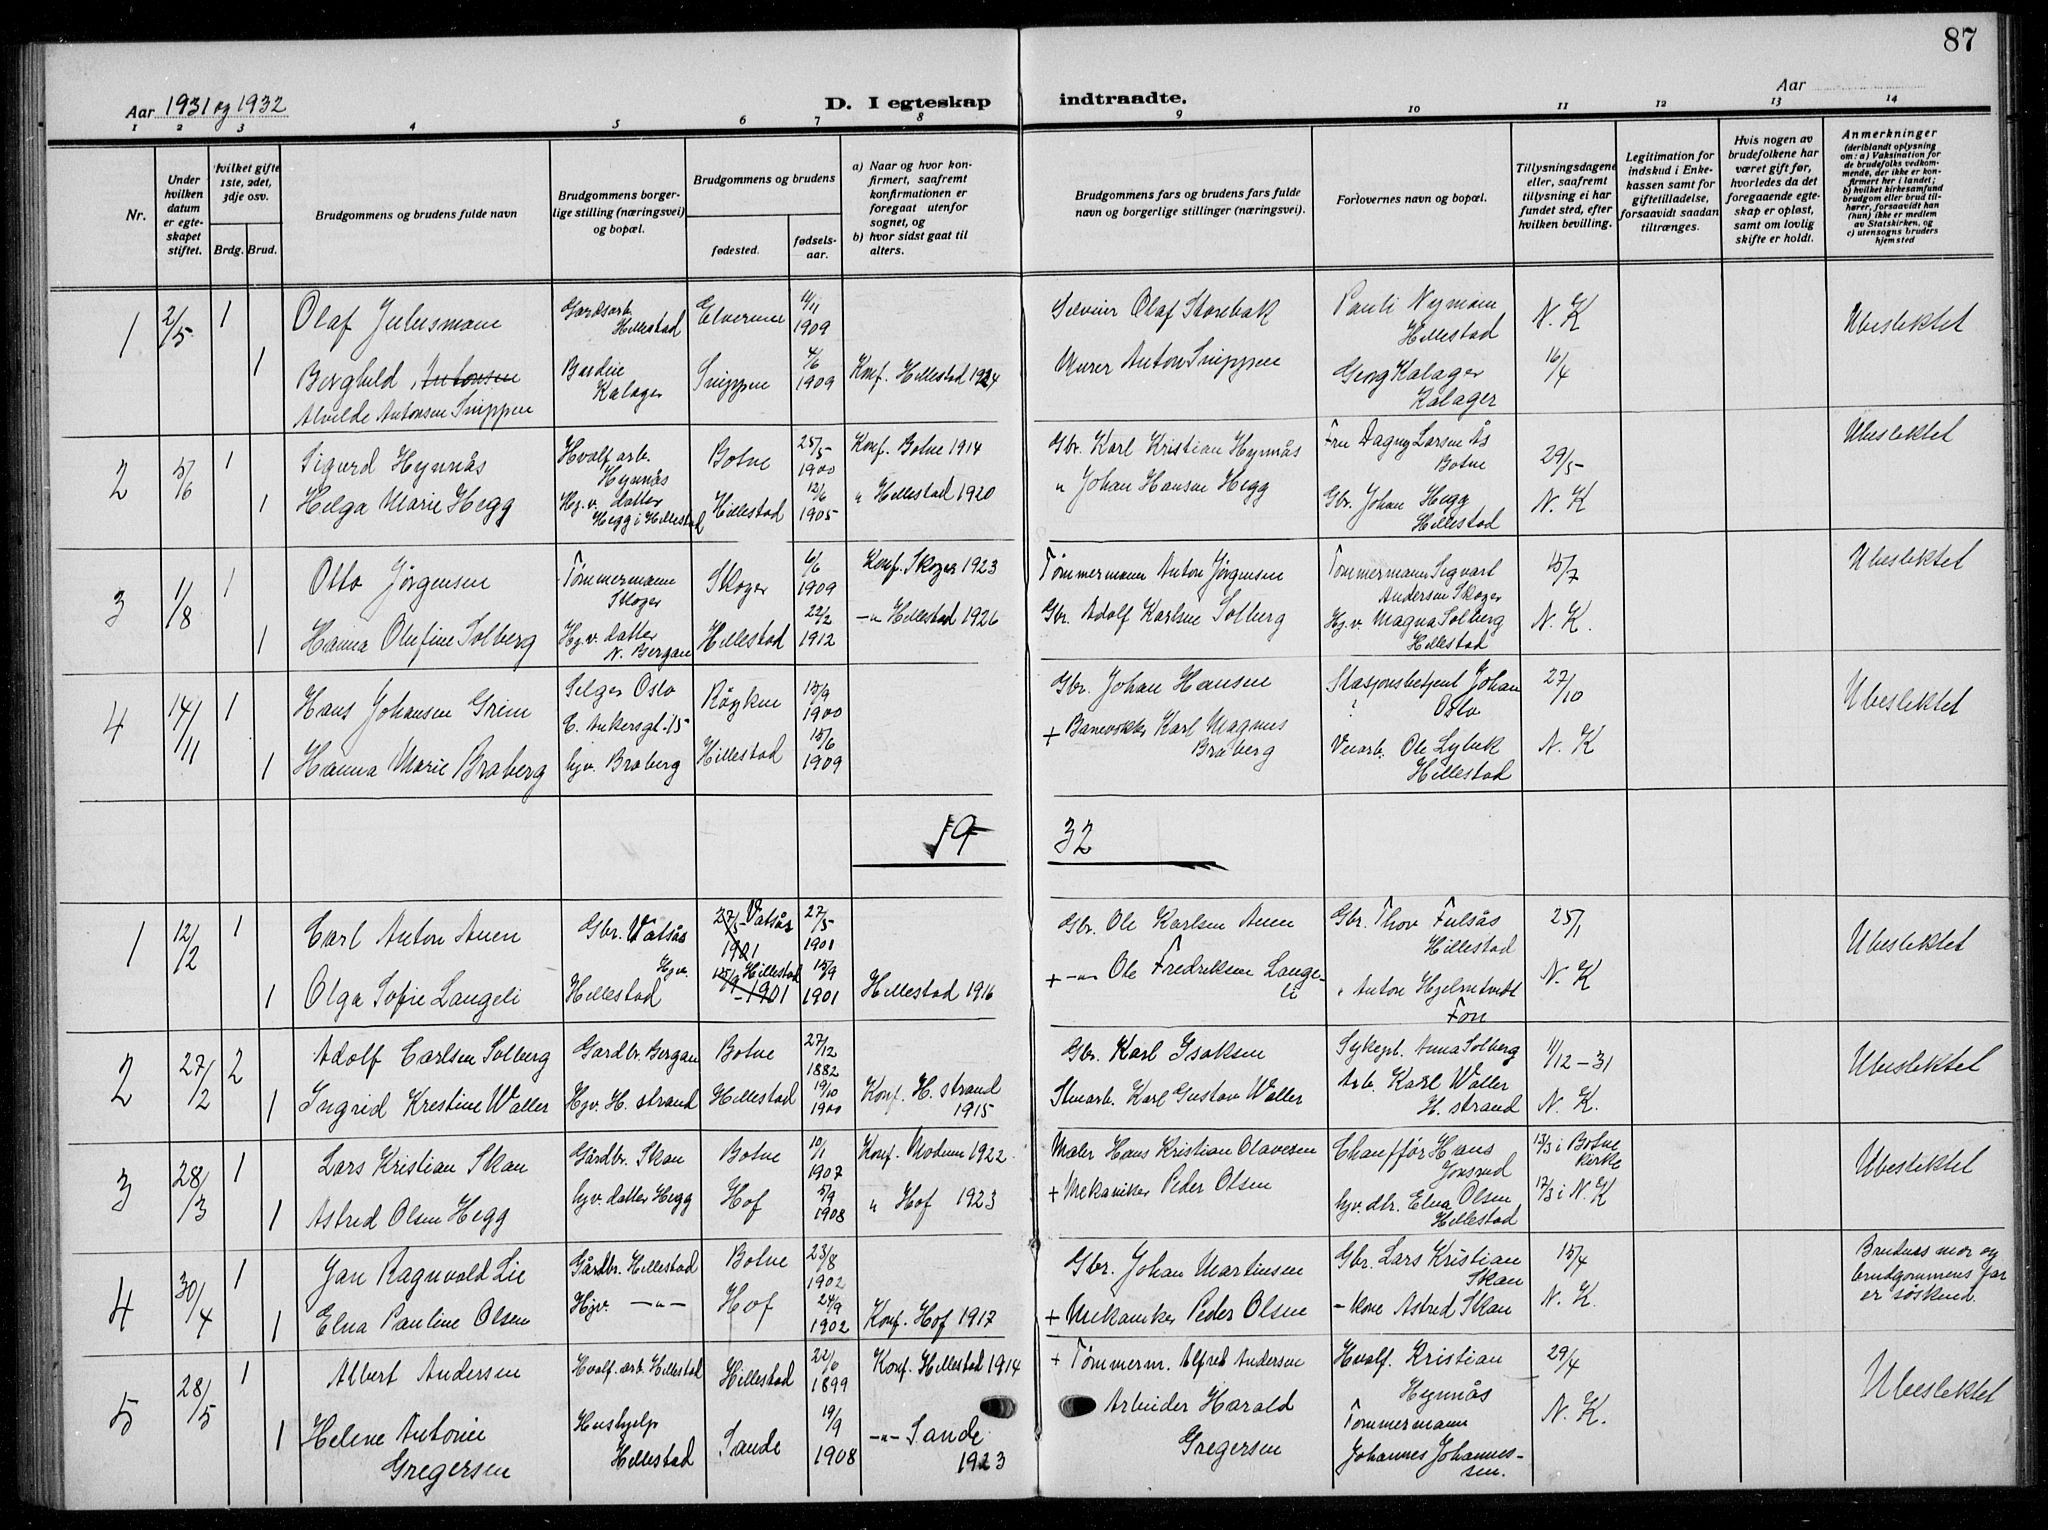 87
Aar 1931 og 1932
D. I egteskap
indtraadte.
Aar
1 2 3 4 5 6 7 8 9 10 11 12 13 14
Nr.
Under hvilken datum er egte-skapet stiftet.
hvilket gifte 1ste, 2det, 3dje osv.
Brdg. Brud.
Brudgommens og brudens fulde navn
Brudgommens borger-lige stilling (næringsvei) og bopæl.
Brudgommens og brudens
fødested.
fødsels-aar.
a) Naar og hvor kon-firmert, saafremt konfirmationen er foregaat utenfor sognet, og
b) hvor sidst gaat til alters.
Brudgommens fars og brudens fars fulde navn og borgerlige stillinger (næringsvei).
Forlovernes navn og bopæl.
Tillysningsdagene eller, saafremt tillysning ei har fundet sted, efter hvilken bevilling.
Legitimation for indskud i Enke-kassen samt for giftetilladelse, forsaavidt saadan tiltrænges.
Hvis nogen av brudefolkene har været gift før, hvorledes da det foregaaende egte-skap er opløst, samt om lovlig skifte er holdt.
Anmerkninger (deriblandt oplysning om: a) Vaksination for de brudefolks vedkom-mende, der ikke er kon-firmert her i landet; b) hvilket kirkesamfund brudgom eller brud til-hører, forsaavidt han (hun) ikke er medlem av Statskirken, og c) utensogns bruders hjemsted
1 2/5 1 Olaf Juliusmoen Gardsarb. Hillestad Elverum 11/11 1909 Olaf Storebak Pauli Nymoen Hillestad N. K Ubeslektet
1 Berghild Antonsen Alvilde Antonsen Snippen Budeie Kalager Snippen 4/6 1909 Konf. Hillestad 1924 Murer Anton Snippen Georg Kalager Kalager 16/4
2 5/6 1 Sigurd Hynnås Hvalf arb. Hynnås Botne 25/5 1900 Konf. Botne 1914 Gbr. Karl Kristian Hynnås Fru Dagny Larsen Ås Botne 29/5 Ubeslektet
1 Helga Marie Hegg Hj.v. datter Hegg i Hillestad Hillestad 12/6 1905 " Hillestad 1920 " Johan Hansen Hegg Gbr. Johan Hegg Hillestad N. K
3 1/8 1 Otto Jørgensen Tømmermann Skoger Skoger 6/6 1909 Konf. Skoger 1923 Tømmermann Anton Jørgensen Tømmermann Sigvart Andersen Skoger 15/7 Ubeslektet
1 Hanna Olufine Solberg Hj.v. datter N. Bergan Hillestad 22/2 1912 -"- Hillestad 1926 Gbr. Adolf Karlsen Solberg Hj.v. Magna Solberg Hillestad N. K.
4 14/11 1 Hans Johansen Grim Selger Oslo C. Ankersgt. 15 Røyken 15/9 1900 Gbr. Johan Hansen Stasjonsbetjent Johan ? Oslo 27/10 Ubeslektet
1 Hanna Marie Braberg hjv. Braberg Hillestad 15/6 1909 + Banevokter Karl Magnus Braberg Veiarb. Ole Lybek Hillestad N. K
19 32
1 12/2 1 Carl Anton Auen Gbr. Vatsås 27/5 1901 Vatsås 27/5 1901 Gbr. Ole Karlsen Auen Gbr. Thov Fulsås Hillestad 25/1 Ubeslektet
1 Olga Sofie Langeli Hjv. Hillestad 15/9 1901 Hillestad 15/9 1901 Hillestad 1916 + -"- Ole Fredriksen Langeli " Anton Hjelmtvedt Fon N. K
2 27/2 2 Adolf Carlsen Solberg Gardbr. Bergan Botne 27/12 1882 Gbr. Karl Isaksen Sykepl. Anna Solberg 11/12-31 Ubeslektet
1 Ingrid Krestine Waller Hjv. H. strand Hillestad 19/10 1900 Konf. H. strand 1915 Stuearb. Karl Gustav Waller Arb. Karl Waller H. strand N. K.
3 28/3 1 Lars Kristian Skan Gårdbr. Skan Botne 10/1 1907 Konf. Modum 1922 Maler Hans Kristian Olavesen Chauffør Hans Jonsrud 13/3 i Botne kirke Ubeslektet
1 Astrid Olsen Hegg hjv. datter Hegg Hof 5/9 1908 " Hof 1923 + Mekaniker Peder Olsen hjv. dtr. Elna Olsen Hillestad 17/3 i N. K
4 30/4 1 Jan Ragnvald Lie Gårdbr. Hillestad Botne 23/8 1902 Gbr. Johan Martinsen Gbr. Lars Kristian Skan 15/4 Brudens mor og brudgommens far er søskend.
1 Elna Pauline Olsen Hjv. -"- Hof 24/9 1902 Konf. Hof 1917 + Mekaniker Peder Olsen - kone Astrid Skan N. K.
5 28/5 1 Albert Andersen Hvalf. arb. Hillestad Hillestad 22/6 1899 Konf. Hillestad 1914 + Tømmerm. Alfred Andersen Hvalf. Kristian Hynnås 29/4 Ubeslektet
1 Helene Antonie Gregersen Hushjelp Hillestad Sande 19/9 1908 -"- Sande 1923 Arbeider Harald Gregersen Tømmermann Johannes Johannes-sen. N. K.